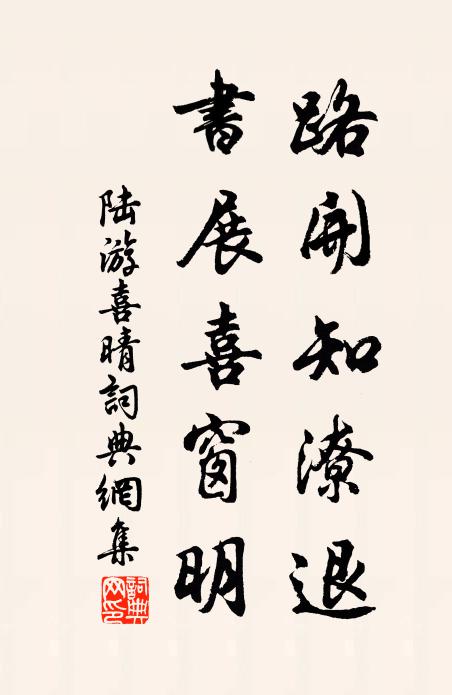 路開知潦退
書展喜窗明
陸游喜晴詞典網集
詞典網印